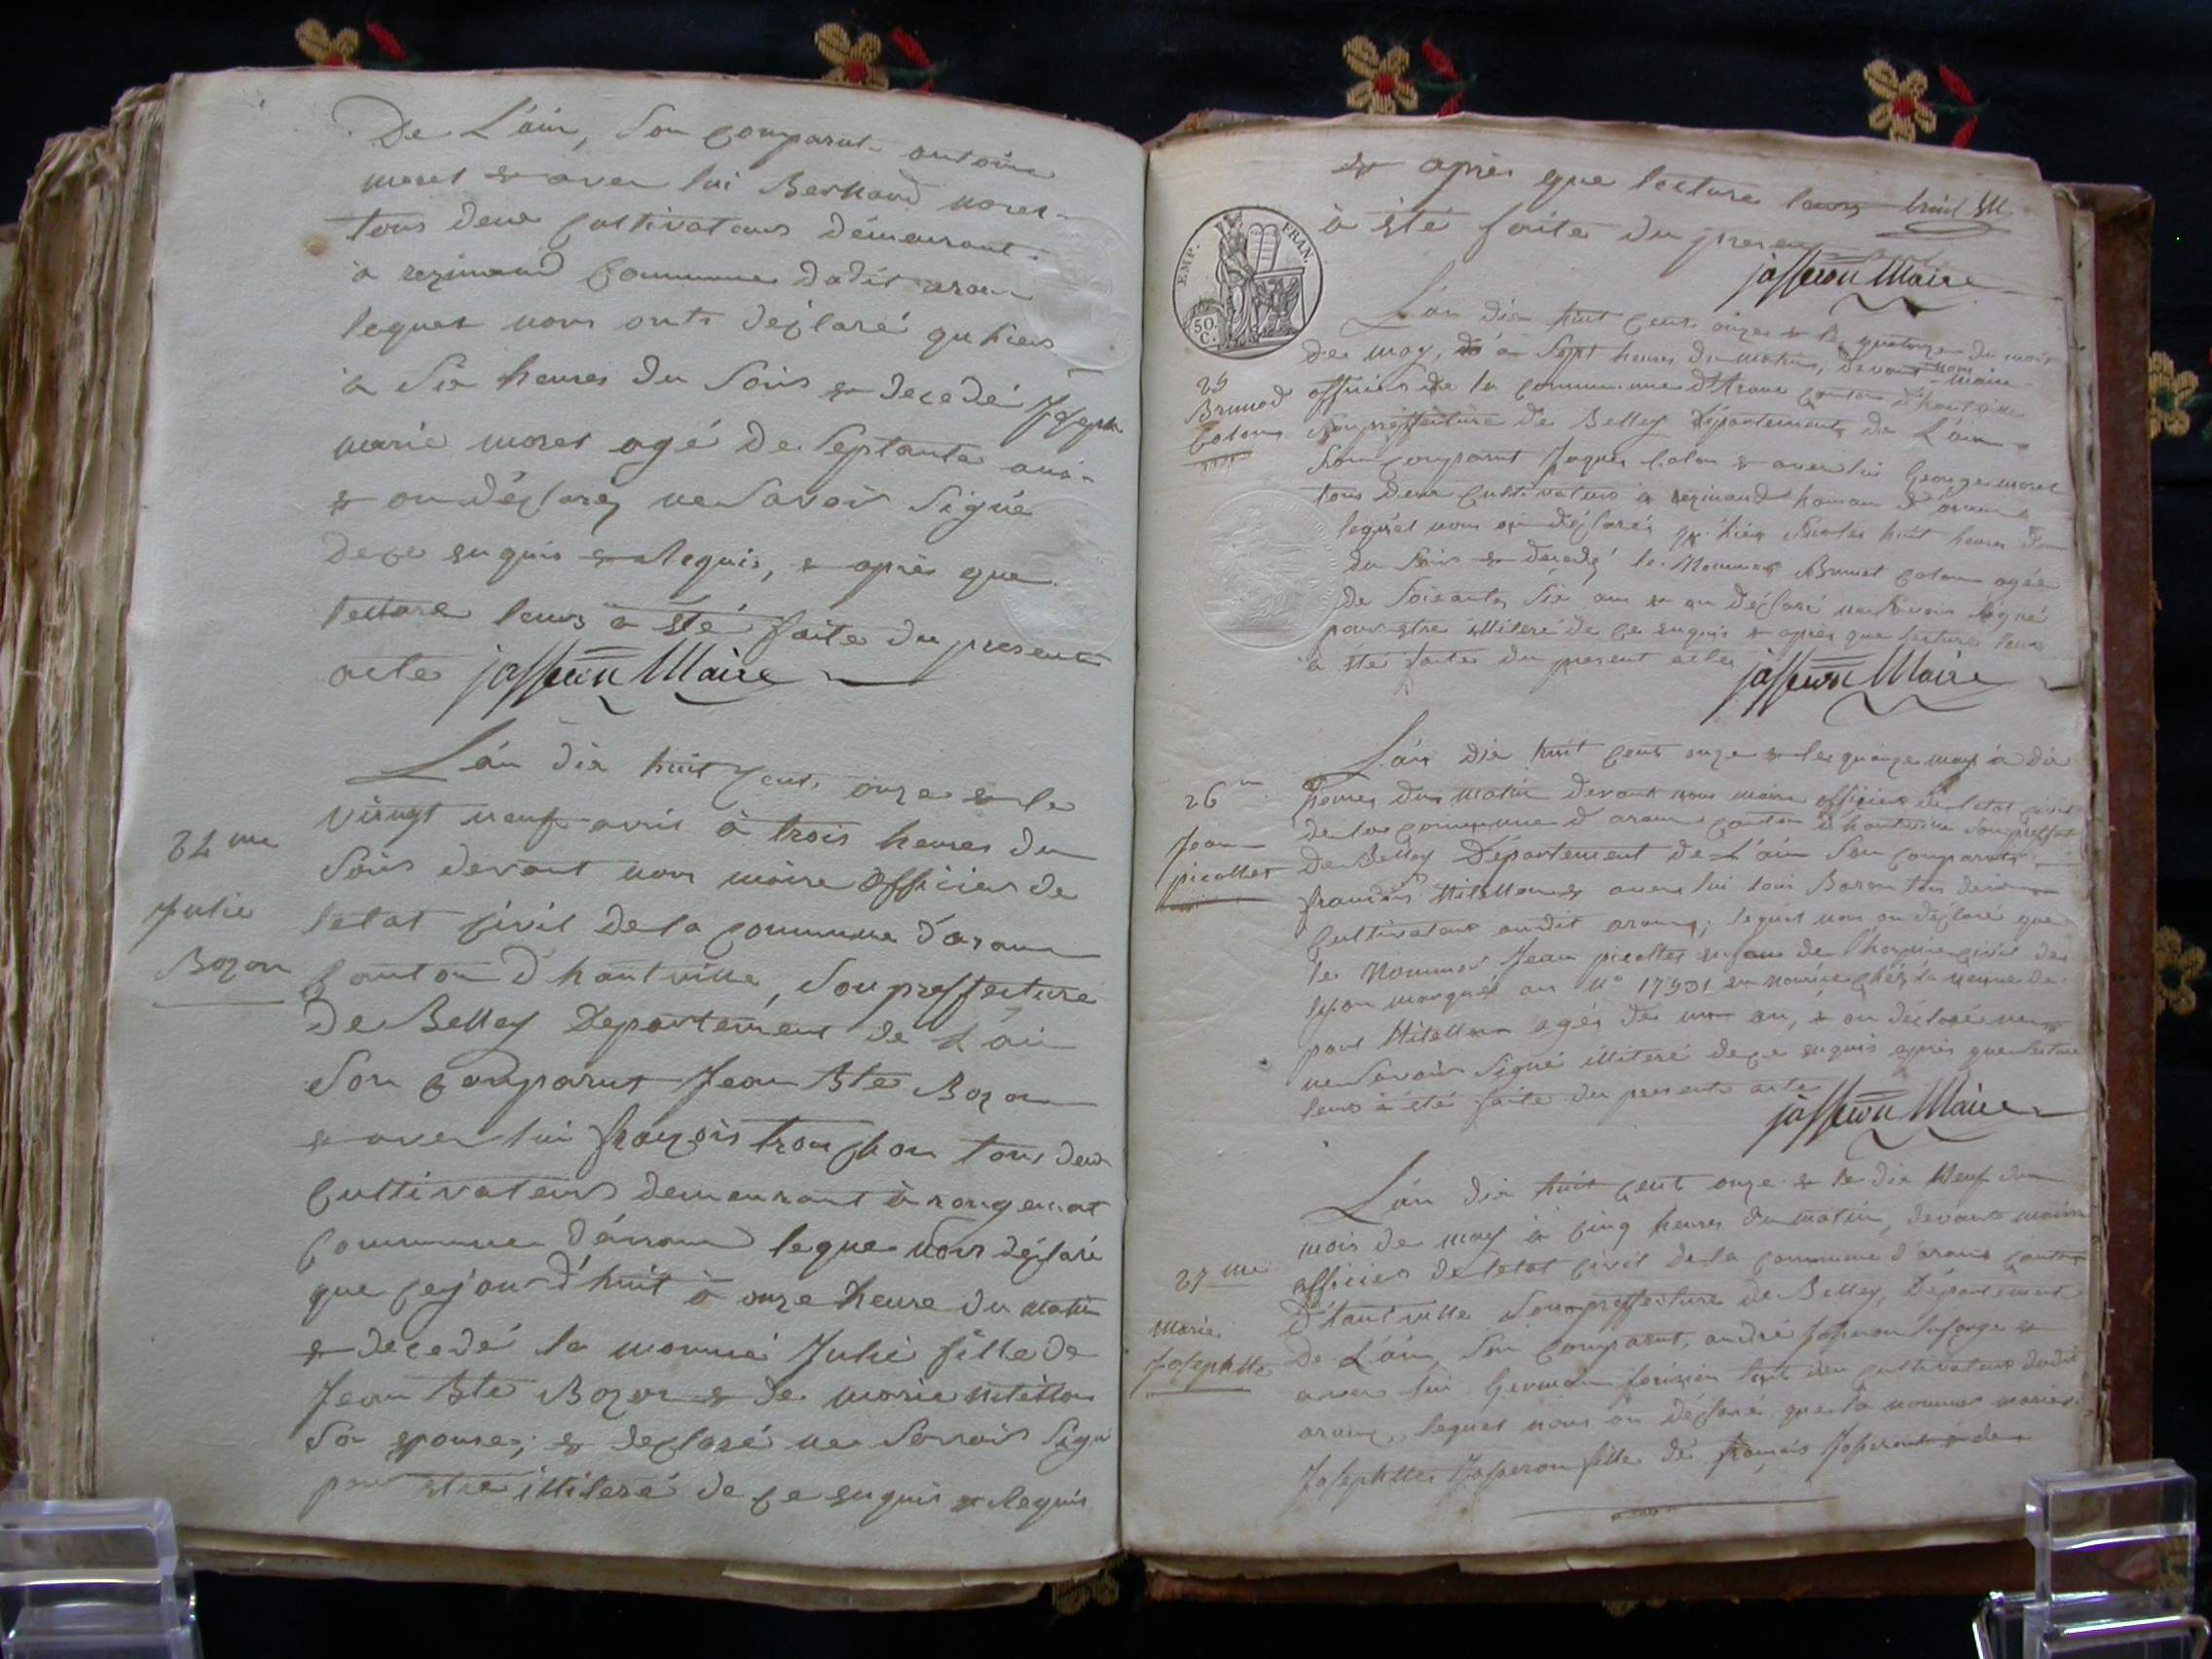 De L'ain, Son Comparut antoine
moret & avec lui Bernard moret
tous deux Cultivateurs démeurant
à rezinand Commune dudit aranc
lequel nous onts déclaré qu'hier
à Six heures du Soir & decedé Joseph
marie moret agé de Septante ans
& on déclaré ne Savoir Signé
dece enquis & requis, & après que
lecture leurs à été faite du present
acte jasseron Maire
L'án dix huit Cent onze & le
vingt neuf avril à trois heures du
Soir devant nous maire officier de
letat Civil de la Commune d'aranc
Canton d'hauteville, Souspreffecture
de Belley Departement de L'ain
Son Comparut Jean Bte Bozon
& avec lui françois tronchon tous deux
Cultivateurs demeurant à rougemont
Commune d'aranc lequel nous déclaré
que Cejourd'huit à onze heure du matin
& decedé la nommé Julie fille de
Jean Bte Bozon & de marie
Sa epouse, & declaré ne Savoir Signé
pour etre illiteré de Ce enquis & requis
24 me
Julie
Bozon
& après que lecture leurs
à été faite du present
jasseron Maire
EMP. FRAN.
50 C.
L'án dix huit Cent onze & le quatorze du mois
de may, à Sept heures du matin, devant nous maire
officier de la Commune d'Aranc Canton d'hauteville
Souspreffecture de Belley Département de L'ain
Son Comparut Jaques Colon & avec lui George moret
tous deux Cultivateurs à rezinand hameau d'aranc
lequel nous on déclaré qu'hier huit heures
du Soir & decedé le Nommé Brunet Colon agée
de Soixante Six ans & on déclaré ne Savoir Signé
pour etre illiteré de Ce enquis & après que lecture leurs
à été faite du present acte jasseron Maire
25
Colon
L'án dix huit Cent onze & le quinze may à dix
heures du matin devant nous maire officier de letat Civil
de la Commune d'aranc Canton d'hauteville
de Belley Département de L'ain Son Comparut
françois & avec lui loui Bozon tous deux
Cultivateurs audit aranc, lequel nous on déclaré que
le Nommé Jean picollet enfant de l'hospice Civil de
lyon marqué au N° en nourice chéz la veuve de
paul agés de un an, & on déclaré
ne Savoir Signé illiteré de ce enquis après que lecture
leurs à été faite du present acte
jasseron Maire
26
Jean
picollet
L'án dix huit Cent onze & le dix Neuf du
mois de may à Cinq heures du matin, devant maire
officier de letat Civil de la Commune d'aranc Canton
d'hauteville Souspreffecture de Belley, Département
de L'ain, Son Comparut, andré Jasseron &
avec lui Germain tout deux Cultivateurs dudit
aranc, lequel nous on déclaré que la nommé marie
Josephtte Jasseron fille de françois Jasseron & de
27 me
marie
Josephtte